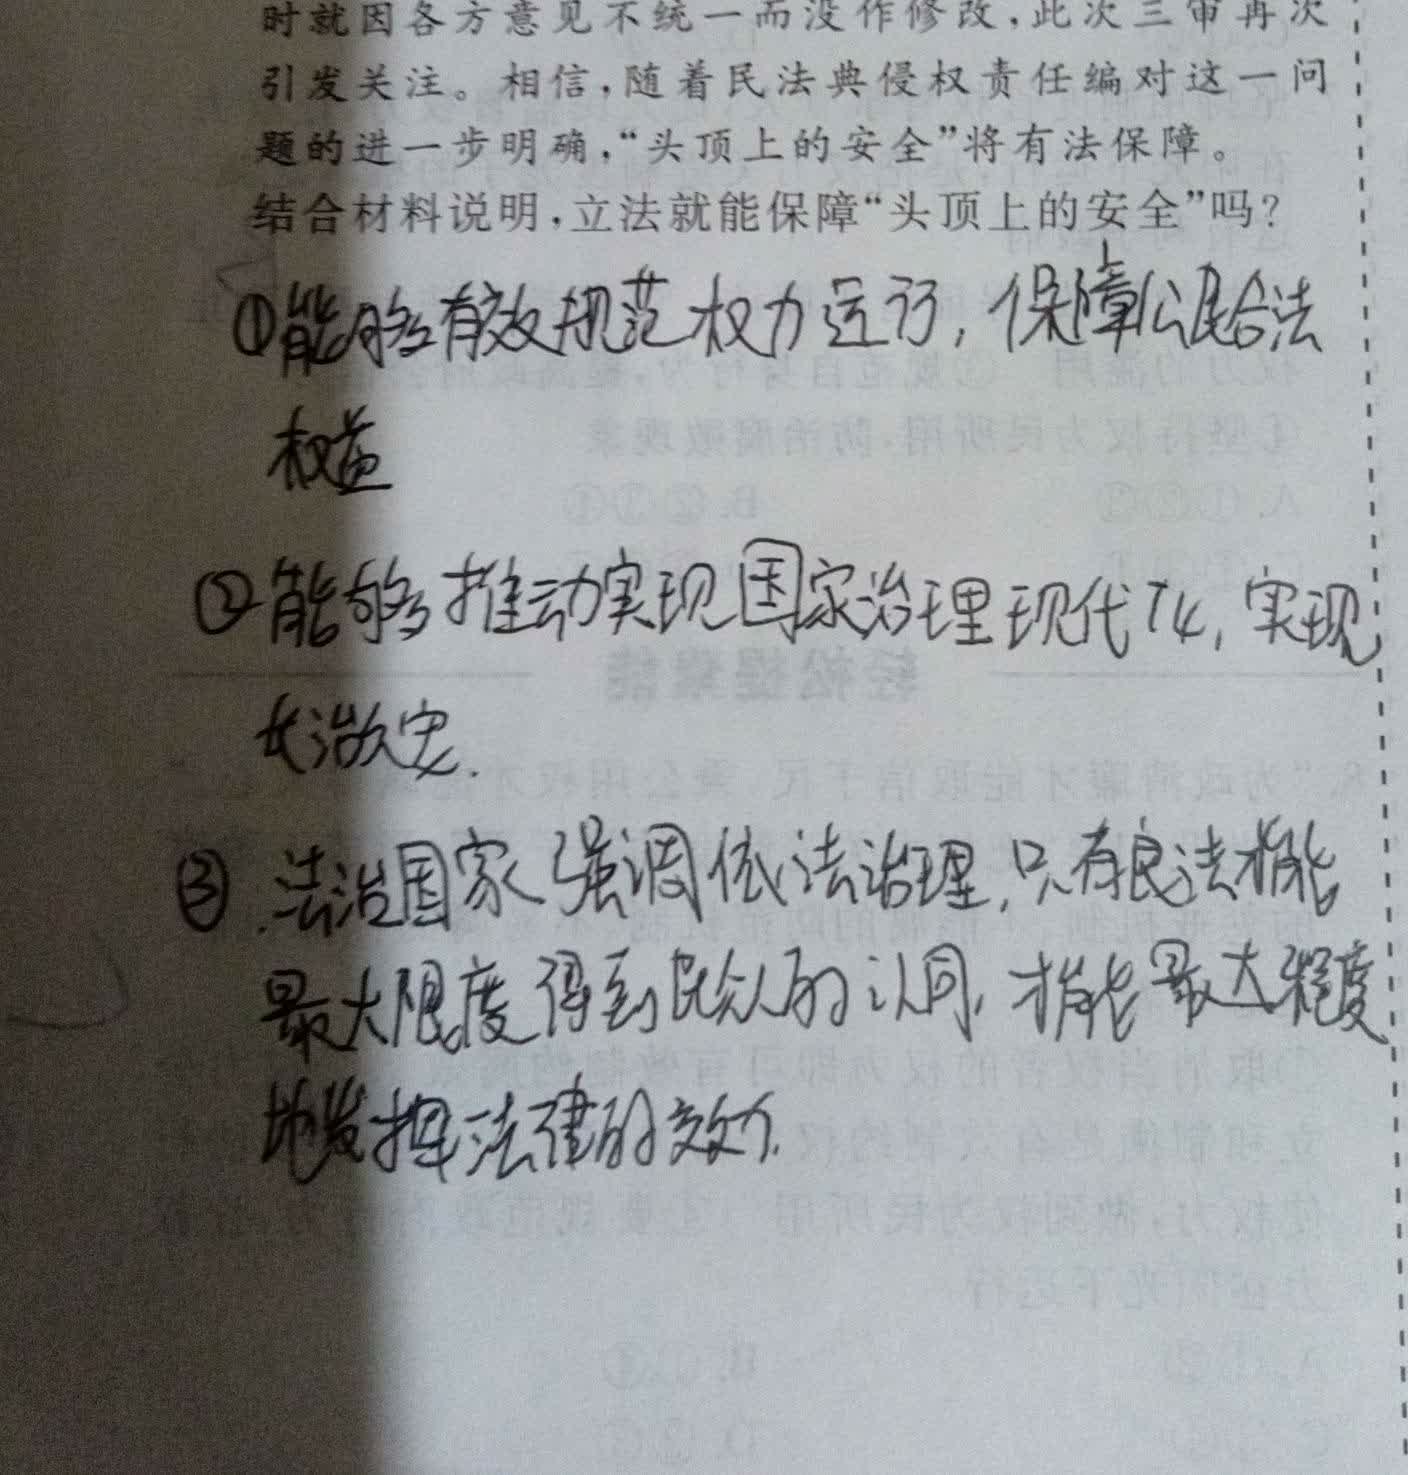 时就因各方意见不统一而没作修改，此次三审再次
引发关注。相信，随着民法典侵权责任编对这一问
题的进一步明确，“头顶上的安全”将有法保障。
结合材料说明，立法就能保障“头顶上的安全”吗？
①能够有效规范权力运行，保障公民合法
权益
②能够推动实现国家治理现代化，实现
长治久安.
③.法治国家强调依法治理，只有良法才能
最大限度得到民众的认同，才能最大程度
地发挥法律的效力.